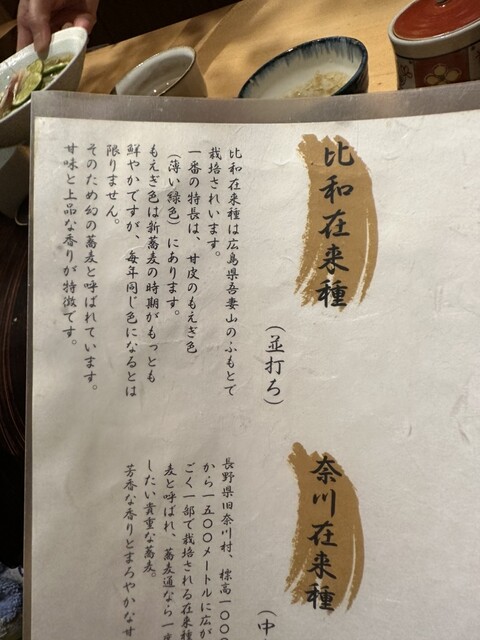 比和在来種
（並打ち）
比和在来種は広島県吾妻山のふもとで
栽培されいます。
一番の特長は、甘皮のもえぎ色
（薄い緑色）にあります。
もえぎ色は新蕎麦の時期がもっとも
鮮やかですが、毎年同じ色になるとは
限りません。
そのため幻の蕎麦と呼ばれています。
甘味と上品な香りが特徴です。
奈川在来種
（中
長野県旧奈川村、標高一〇〇
から一五〇〇メートルに広が
ごく一部で栽培される在来種
麦と呼ばれ、蕎麦通なら一度
したい貴重な蕎麦。
芳香な香りとまろやかな甘